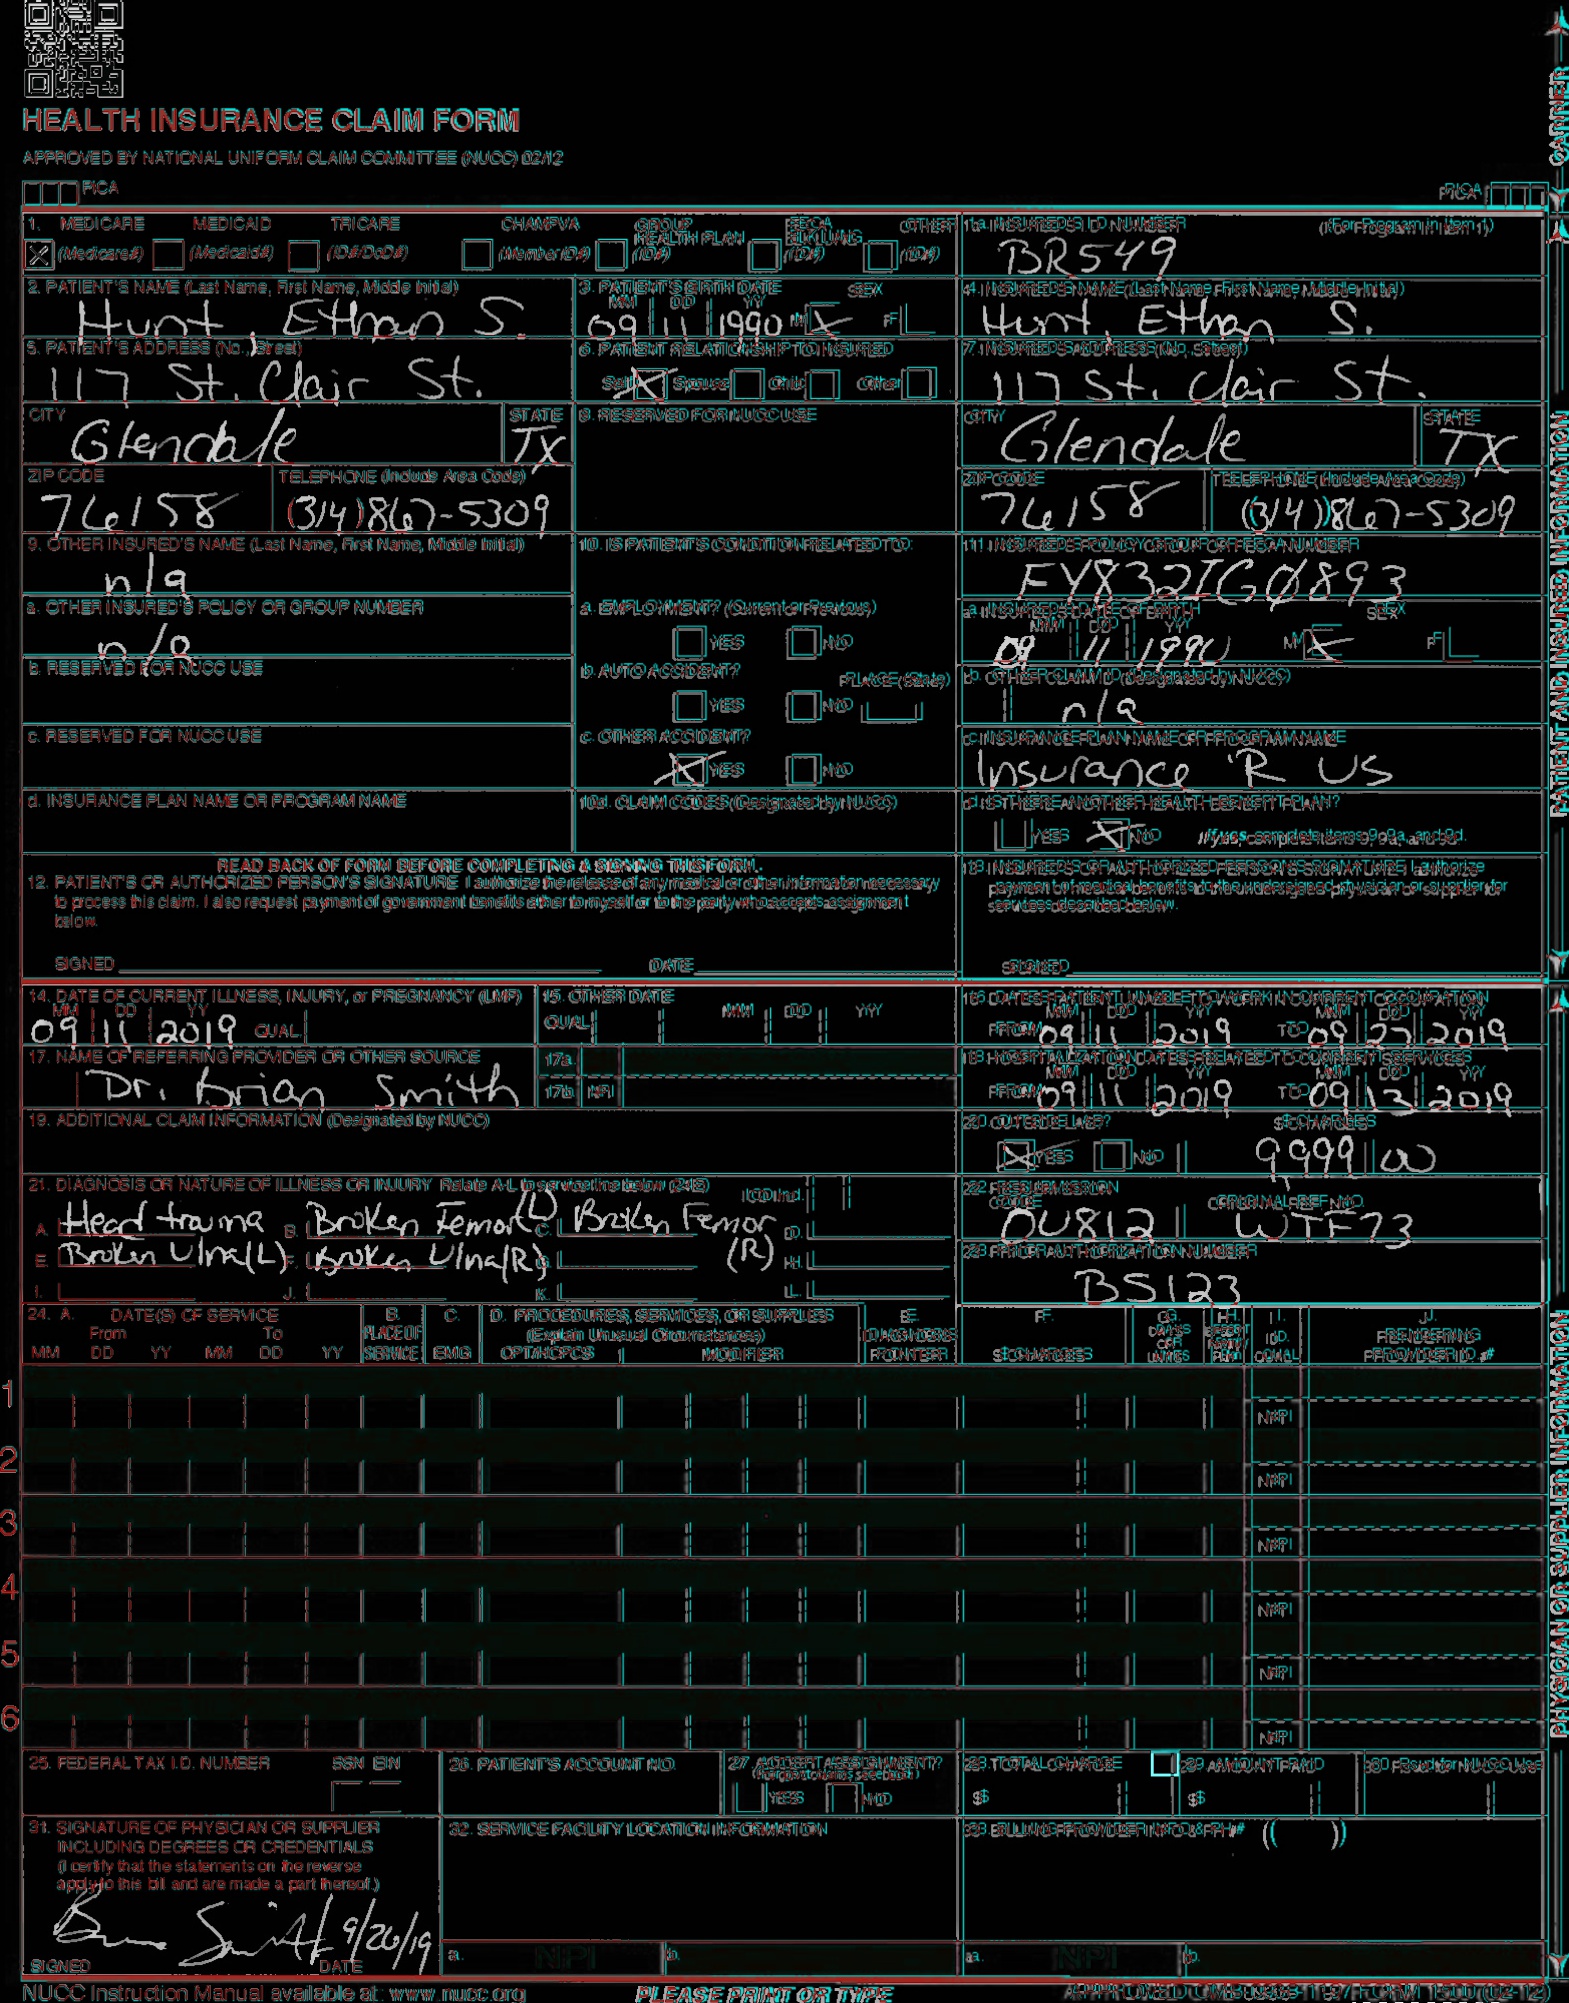 HEALTH INSURANCE CLAIM FORM
APPROVED BY NATIONAL UNIFORM CLAIM COMMITTEE (NUCC) 02/12
PICA
PICA
CARRIER
1. MEDICARE MEDICAID TRICARE CHAMPVA GROUP HEALTH PLAN FECA BLK LUNG OTHER
(Medicare#) (Medicaid#) (ID#/DoD#) (Member ID#) (ID#) (ID#) (ID#)
1a. INSURED'S I.D. NUMBER (For Program in Item 1)
BR549
2. PATIENT'S NAME (Last Name, First Name, Middle Initial)
Hunt, Ethan S.
3. PATIENT'S BIRTH DATE SEX
MM DD YY
09 11 1990 M X F
4. INSURED'S NAME (Last Name, First Name, Middle Initial)
Hunt, Ethan S.
5. PATIENT'S ADDRESS (No., Street)
117 St. Clair St.
6. PATIENT RELATIONSHIP TO INSURED
Self X Spouse Child Other
7. INSURED'S ADDRESS (No., Street)
117 St. Clair St.
CITY STATE
Glendale TX
8. RESERVED FOR NUCC USE
CITY STATE
Glendale TX
ZIP CODE TELEPHONE (Include Area Code)
76158 (314)867-5309
ZIP CODE TELEPHONE (Include Area Code)
76158 (314)867-5309
9. OTHER INSURED'S NAME (Last Name, First Name, Middle Initial)
n/a
10. IS PATIENT'S CONDITION RELATED TO:
11. INSURED'S POLICY GROUP OR FECA NUMBER
FY832IGØ893
a. OTHER INSURED'S POLICY OR GROUP NUMBER
n/a
a. EMPLOYMENT? (Current or Previous)
YES NO
a. INSURED'S DATE OF BIRTH SEX
MM DD YY
09 11 1990 M X F
b. RESERVED FOR NUCC USE
b. AUTO ACCIDENT? PLACE (State)
YES NO
b. OTHER CLAIM ID (Designated by NUCC)
n/a
c. RESERVED FOR NUCC USE
c. OTHER ACCIDENT?
X YES NO
c. INSURANCE PLAN NAME OR PROGRAM NAME
Insurance 'R US
d. INSURANCE PLAN NAME OR PROGRAM NAME
10d. CLAIM CODES (Designated by NUCC)
d. IS THERE ANOTHER HEALTH BENEFIT PLAN?
YES X NO If yes, complete items 9, 9a, and 9d.
READ BACK OF FORM BEFORE COMPLETING & SIGNING THIS FORM.
12. PATIENT'S OR AUTHORIZED PERSON'S SIGNATURE I authorize the release of any medical or other information necessary
to process this claim. I also request payment of government benefits either to myself or to the party who accepts assignment
below.
SIGNED DATE
13. INSURED'S OR AUTHORIZED PERSON'S SIGNATURE I authorize
payment of medical benefits to the undersigned physician or supplier for
services described below.
SIGNED
PATIENT AND INSURED INFORMATION
14. DATE OF CURRENT ILLNESS, INJURY, or PREGNANCY (LMP)
MM DD YY
09 11 2019 QUAL.
15. OTHER DATE
QUAL. MM DD YY
16. DATES PATIENT UNABLE TO WORK IN CURRENT OCCUPATION
MM DD YY MM DD YY
FROM 09 11 2019 TO 09 27 2019
17. NAME OF REFERRING PROVIDER OR OTHER SOURCE
Dr. Brian Smith
17a.
17b. NPI
18. HOSPITALIZATION DATES RELATED TO CURRENT SERVICES
MM DD YY MM DD YY
FROM 09 11 2019 TO 09 13 2019
19. ADDITIONAL CLAIM INFORMATION (Designated by NUCC)
20. OUTSIDE LAB? $ CHARGES
X YES NO 9999 00
21. DIAGNOSIS OR NATURE OF ILLNESS OR INJURY Relate A-L to service line below (24E) ICD Ind.
A. Head trauma B. Broken Femor(L) C. Broken Femor (R) D.
E. Broken Ulna(L) F. Broken Ulna(R) G. H.
I. J. K. L.
22. RESUBMISSION CODE ORIGINAL REF. NO.
OU812 WTF73
23. PRIOR AUTHORIZATION NUMBER
BS123
24. A. DATE(S) OF SERVICE B. C. D. PROCEDURES, SERVICES, OR SUPPLIES E. F. G. H. I. J.
From To PLACE OF (Explain Unusual Circumstances) DIAGNOSIS DAYS OR UNITS EPSDT Family Plan ID. RENDERING
MM DD YY MM DD YY SERVICE EMG CPT/HCPCS MODIFIER POINTER $ CHARGES QUAL. PROVIDER ID. #
1 NPI
2 NPI
3 NPI
4 NPI
5 NPI
6 NPI
25. FEDERAL TAX I.D. NUMBER SSN EIN
26. PATIENT'S ACCOUNT NO.
27. ACCEPT ASSIGNMENT?
(For govt. claims, see back)
YES NO
28. TOTAL CHARGE
$
29. AMOUNT PAID
$
30. Rsvd for NUCC Use
31. SIGNATURE OF PHYSICIAN OR SUPPLIER
INCLUDING DEGREES OR CREDENTIALS
(I certify that the statements on the reverse
apply to this bill and are made a part thereof.)
9/26/19
SIGNED DATE
32. SERVICE FACILITY LOCATION INFORMATION
a. NPI b.
33. BILLING PROVIDER INFO & PH # ( )
a. NPI b.
PHYSICIAN OR SUPPLIER INFORMATION
NUCC Instruction Manual available at: www.nucc.org
PLEASE PRINT OR TYPE
APPROVED OMB-0938-1197 FORM 1500 (02-12)